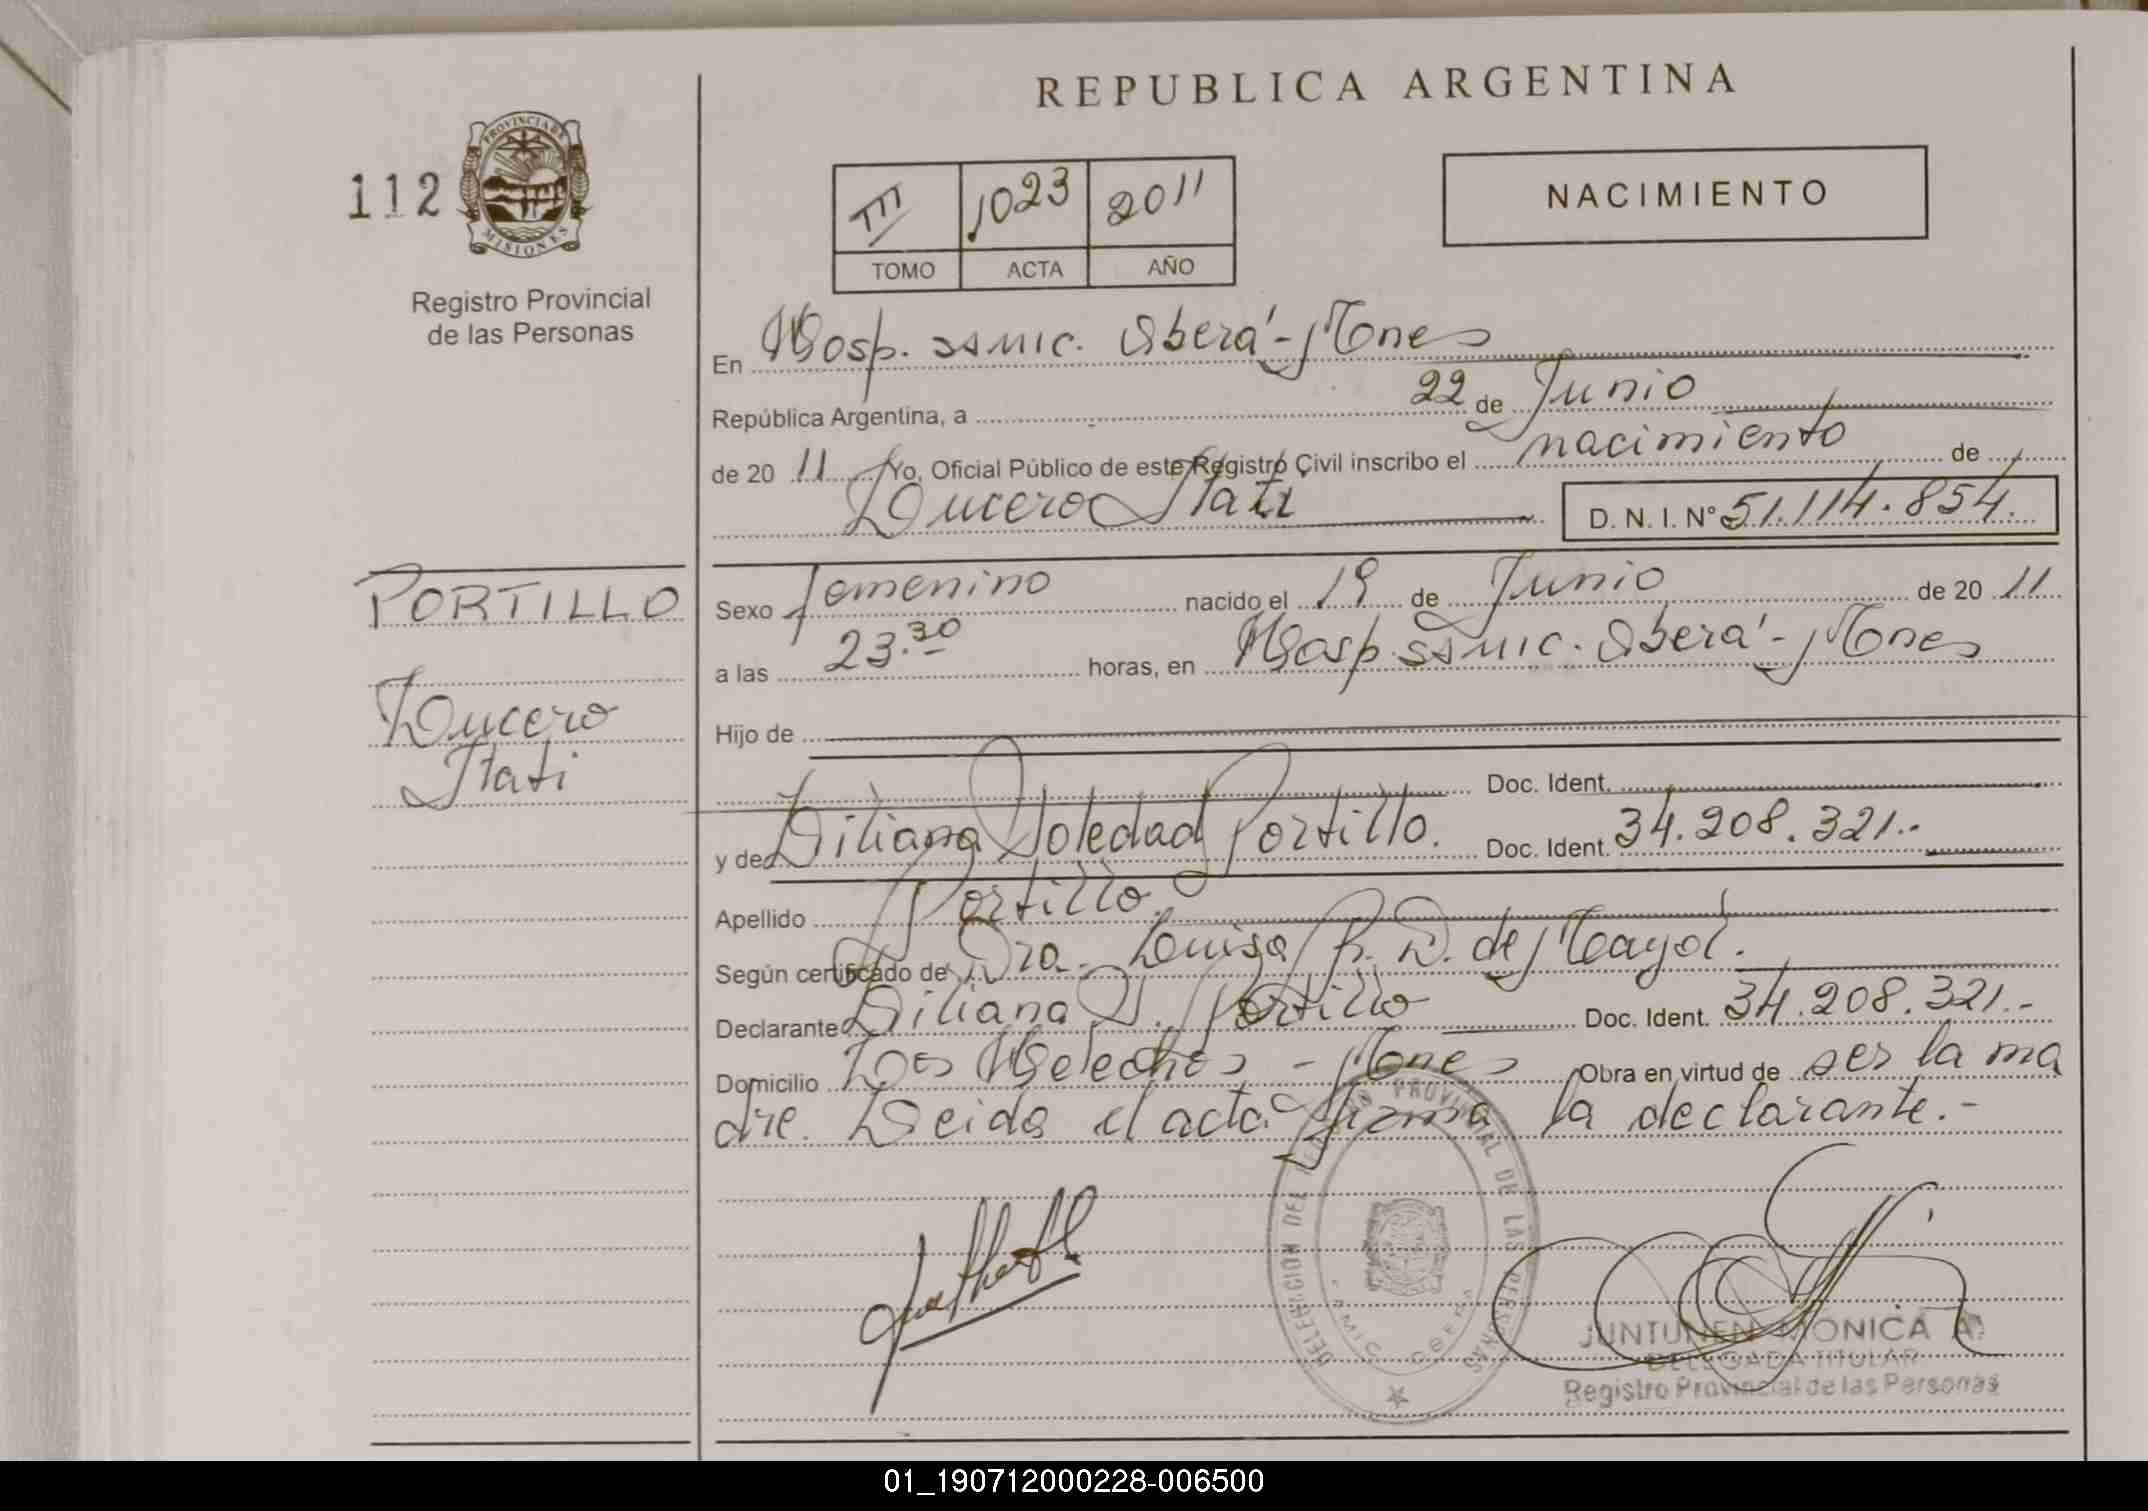 REPUBLICA ARGENTINA
112
PROVINCIA DE
MISIONES
Registro Provincial
de las Personas
III 1023 2011
TOMO ACTA AÑO
NACIMIENTO
En Hosp. SAMIC. Oberá - Mnes
República Argentina, a 22 de Junio
de 20 11 Yo, Oficial Público de este Registro Civil inscribo el nacimiento de
Lucero Itatí
D. N. I. N° 51.114.854.
PORTILLO
Lucero
Itati
Sexo femenino nacido el 19 de Junio de 20 11
a las 23.30 horas, en Hosp. SAMIC. Oberá - Mnes
Hijo de
Doc. Ident.
y de Liliana Soledad Portillo. Doc. Ident. 34.208.321.-
Apellido Portillo.
Según certificado de Dra. Luisa R. D. de Mayol.
Declarante Liliana S. Portillo Doc. Ident. 34.208.321.-
Domicilio Los Helechos - Mnes Obra en virtud de ser la ma
dre. Leida el acta firma la declarante.-
DELEGACION DEL REGISTRO PROVINCIAL DE LAS PERSONAS
SAMIC OBERA
JUNTUNEN MONICA A.
DELEGADA TITULAR
Registro Provincial de las Personas
01_190712000228-006500